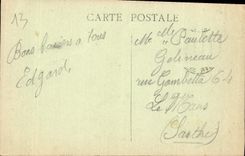 CARTE POSTALE
13
Bons baisers a tous
Edgard.
M. Mlle Paulette
Gelineau
rue Gambetta 64
Le Mans
(Sarthe)